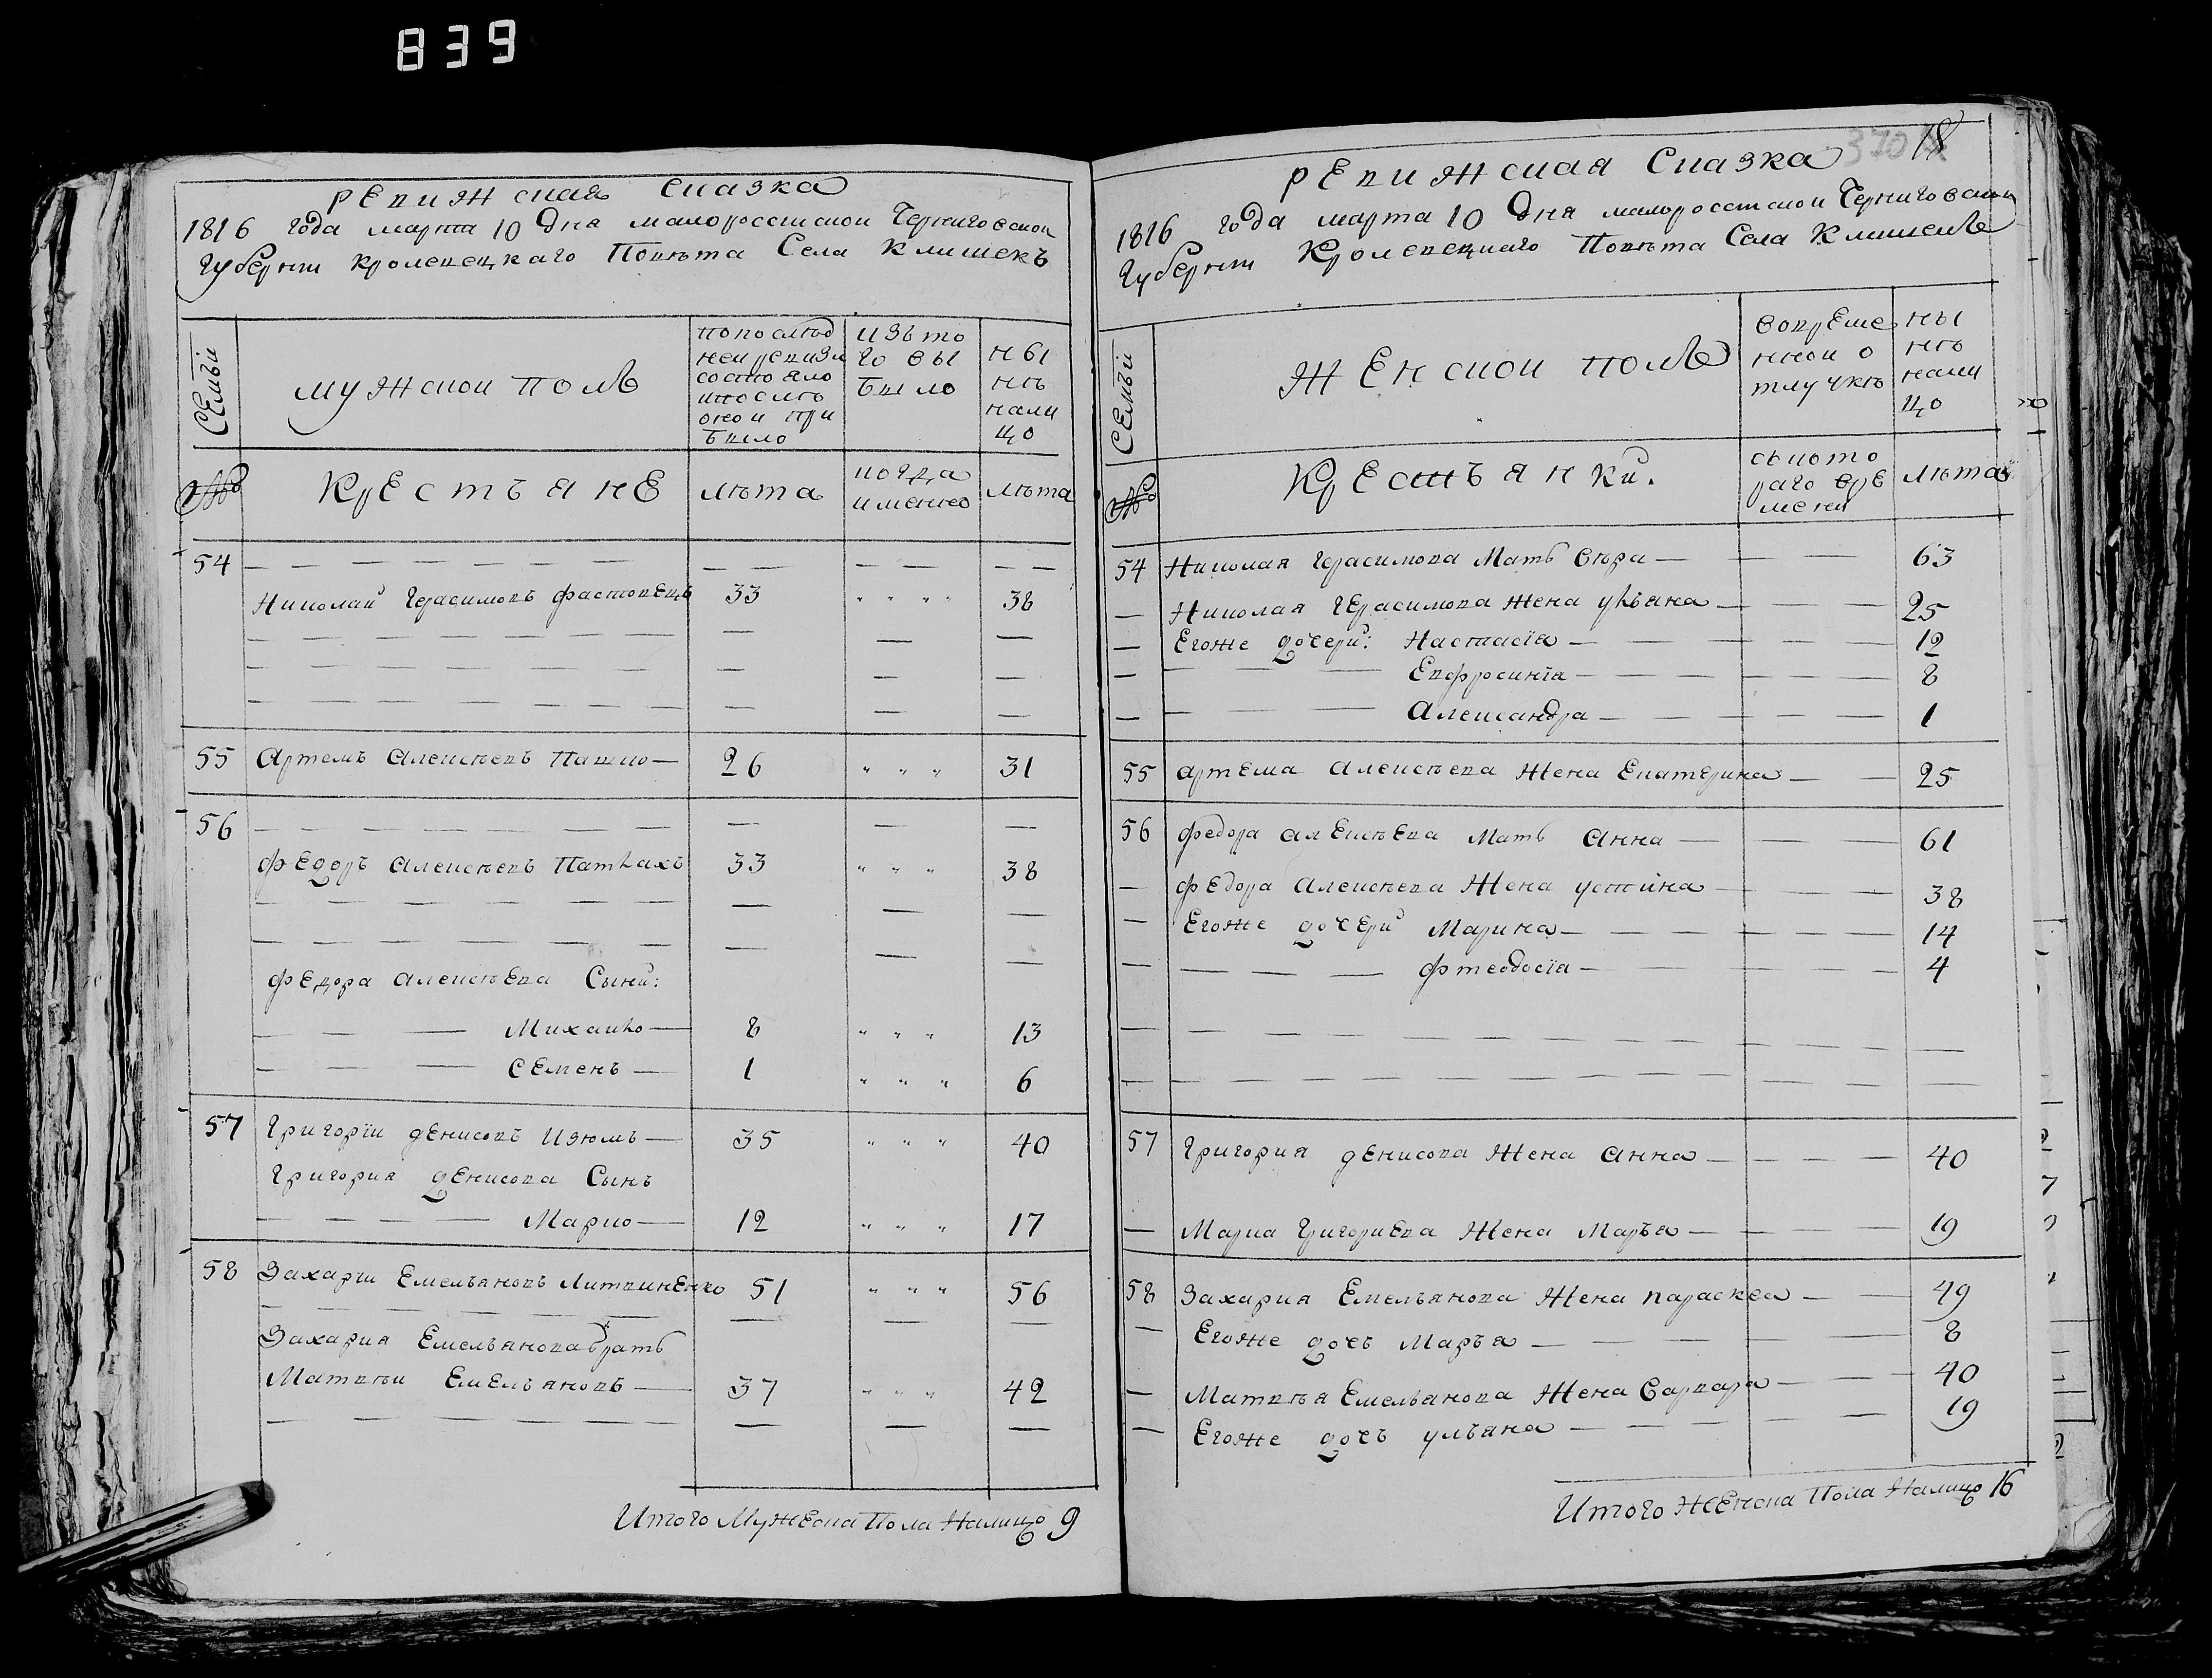 839
РЕВИЖСКАЯ Сказка
1816 года марта 10 Дня малоросстской Черниговской
Губернти Кролевецкаго Повѣта Села Клишекъ
СЕмъи
мужской поль
по послѣд
ней ревизи
состояло
и послѣ
оной при
было
изъ то
го вы
было
НЫ
нѣ
нали
цо
№
КрЕстъянЕ
лѣта
когда
именно
лѣта
54
Николай Герасимовъ фастовЕцъ 33 " " " " 38
55 Артемъ Алексѣевъ Пашко 26 " " " 31
56
фЕдоръ Алексѣевъ Патлахъ 33 " " " 38
фЕдора АлексѣЕва Сыни:
Михайло 8 " " " 13
СЕменъ 1 " " " 6
57 Григорїи дЕнисовъ Изюмъ 35 " " " 40
Григория дЕнисова Сынъ
Марко 12 " " " 17
58 Захарїи Емельяновъ ЛитвинЕнко 51 " " " 56
Захария Емельянова братъ
Матвѣи ЕмЕлъяновъ 37 " " " 42
Итого МужЕска Пола Налицо 9
370 18
РЕвижская Сказка
1816 года марта 10 Дня малоросстской Черниговской
Губернти Кролевецкаго Повѣта Села Клишекъ
СЕмъи
ЖЕнской поль
вовремЕ
нной о
тлучкѣ
НЫ
нѣ
нали
цо
№
КрЕстъянки.
съкото
раго врЕ
мени
лѣта
54 Николая Герасимова Мать Вѣра 63
Николая ГЕрасимова Жена улъяна 25
Егоже дочери: Настасїа 12
Евфросинїа 8
Александра 1
55 артЕма Алексѣева Жена Екатерина 25
56 федора алЕксѣЕва Мать Анна 61
фЕдора Алексѣева Жена устина 38
Егоже дочЕри Марина 14
Фтеодосїа 4
57 Григория дЕнисова Жена Анна 40
Марка ГригориЕва Жена Маръя 19
58 Захария Емельянова Жена параскеа 49
Егоже дочъ Маръя 8
Матвѣя Емельянова Жена Варвара 40
Егоже дочъ улъяна 19
Итого ЖЕнска Пола Налицо 16